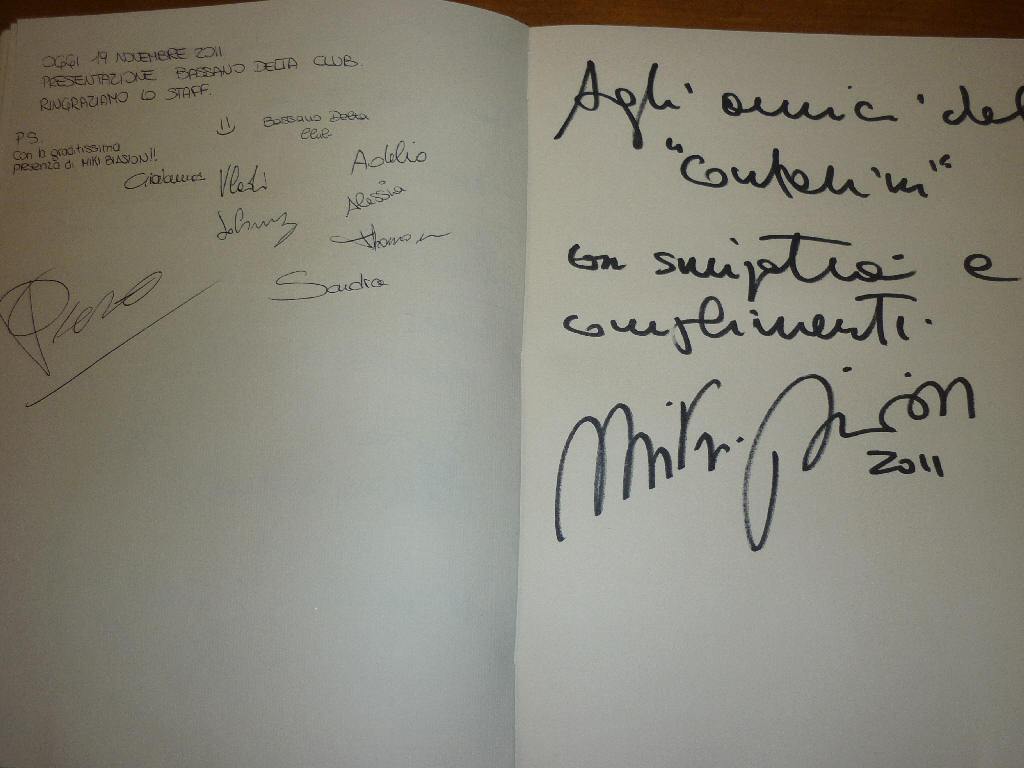 OGGI 19 NOVEMBRE 2011
PRESENTAZIONE BASSANO DELTA CLUB.
RINGRAZIAMO LO STAFF.
Bassano Delta
Club
P.S.
con la graditissima
presenza di MIKI BIASION!!
Adelio
Vladi
Alessia
Johnny
Sandra
Agli amici del
"Contarini"
con simpatia e
complimenti.
Miki Biasion
2011